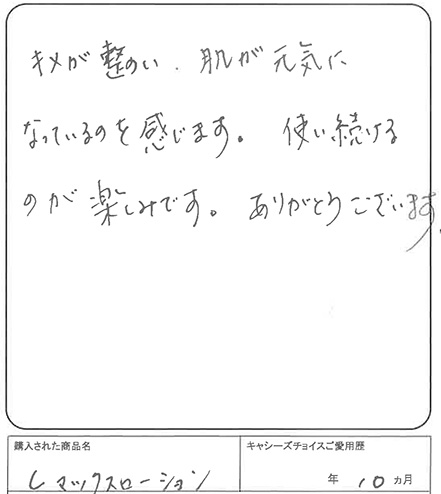 キメが整のい、肌が元気に
なっているのを感じます。使い続ける
のが楽しみです。ありがとうございます。
購入された商品名
キャシーズチョイスご愛用歴
Cマックスローション
年 10 カ月